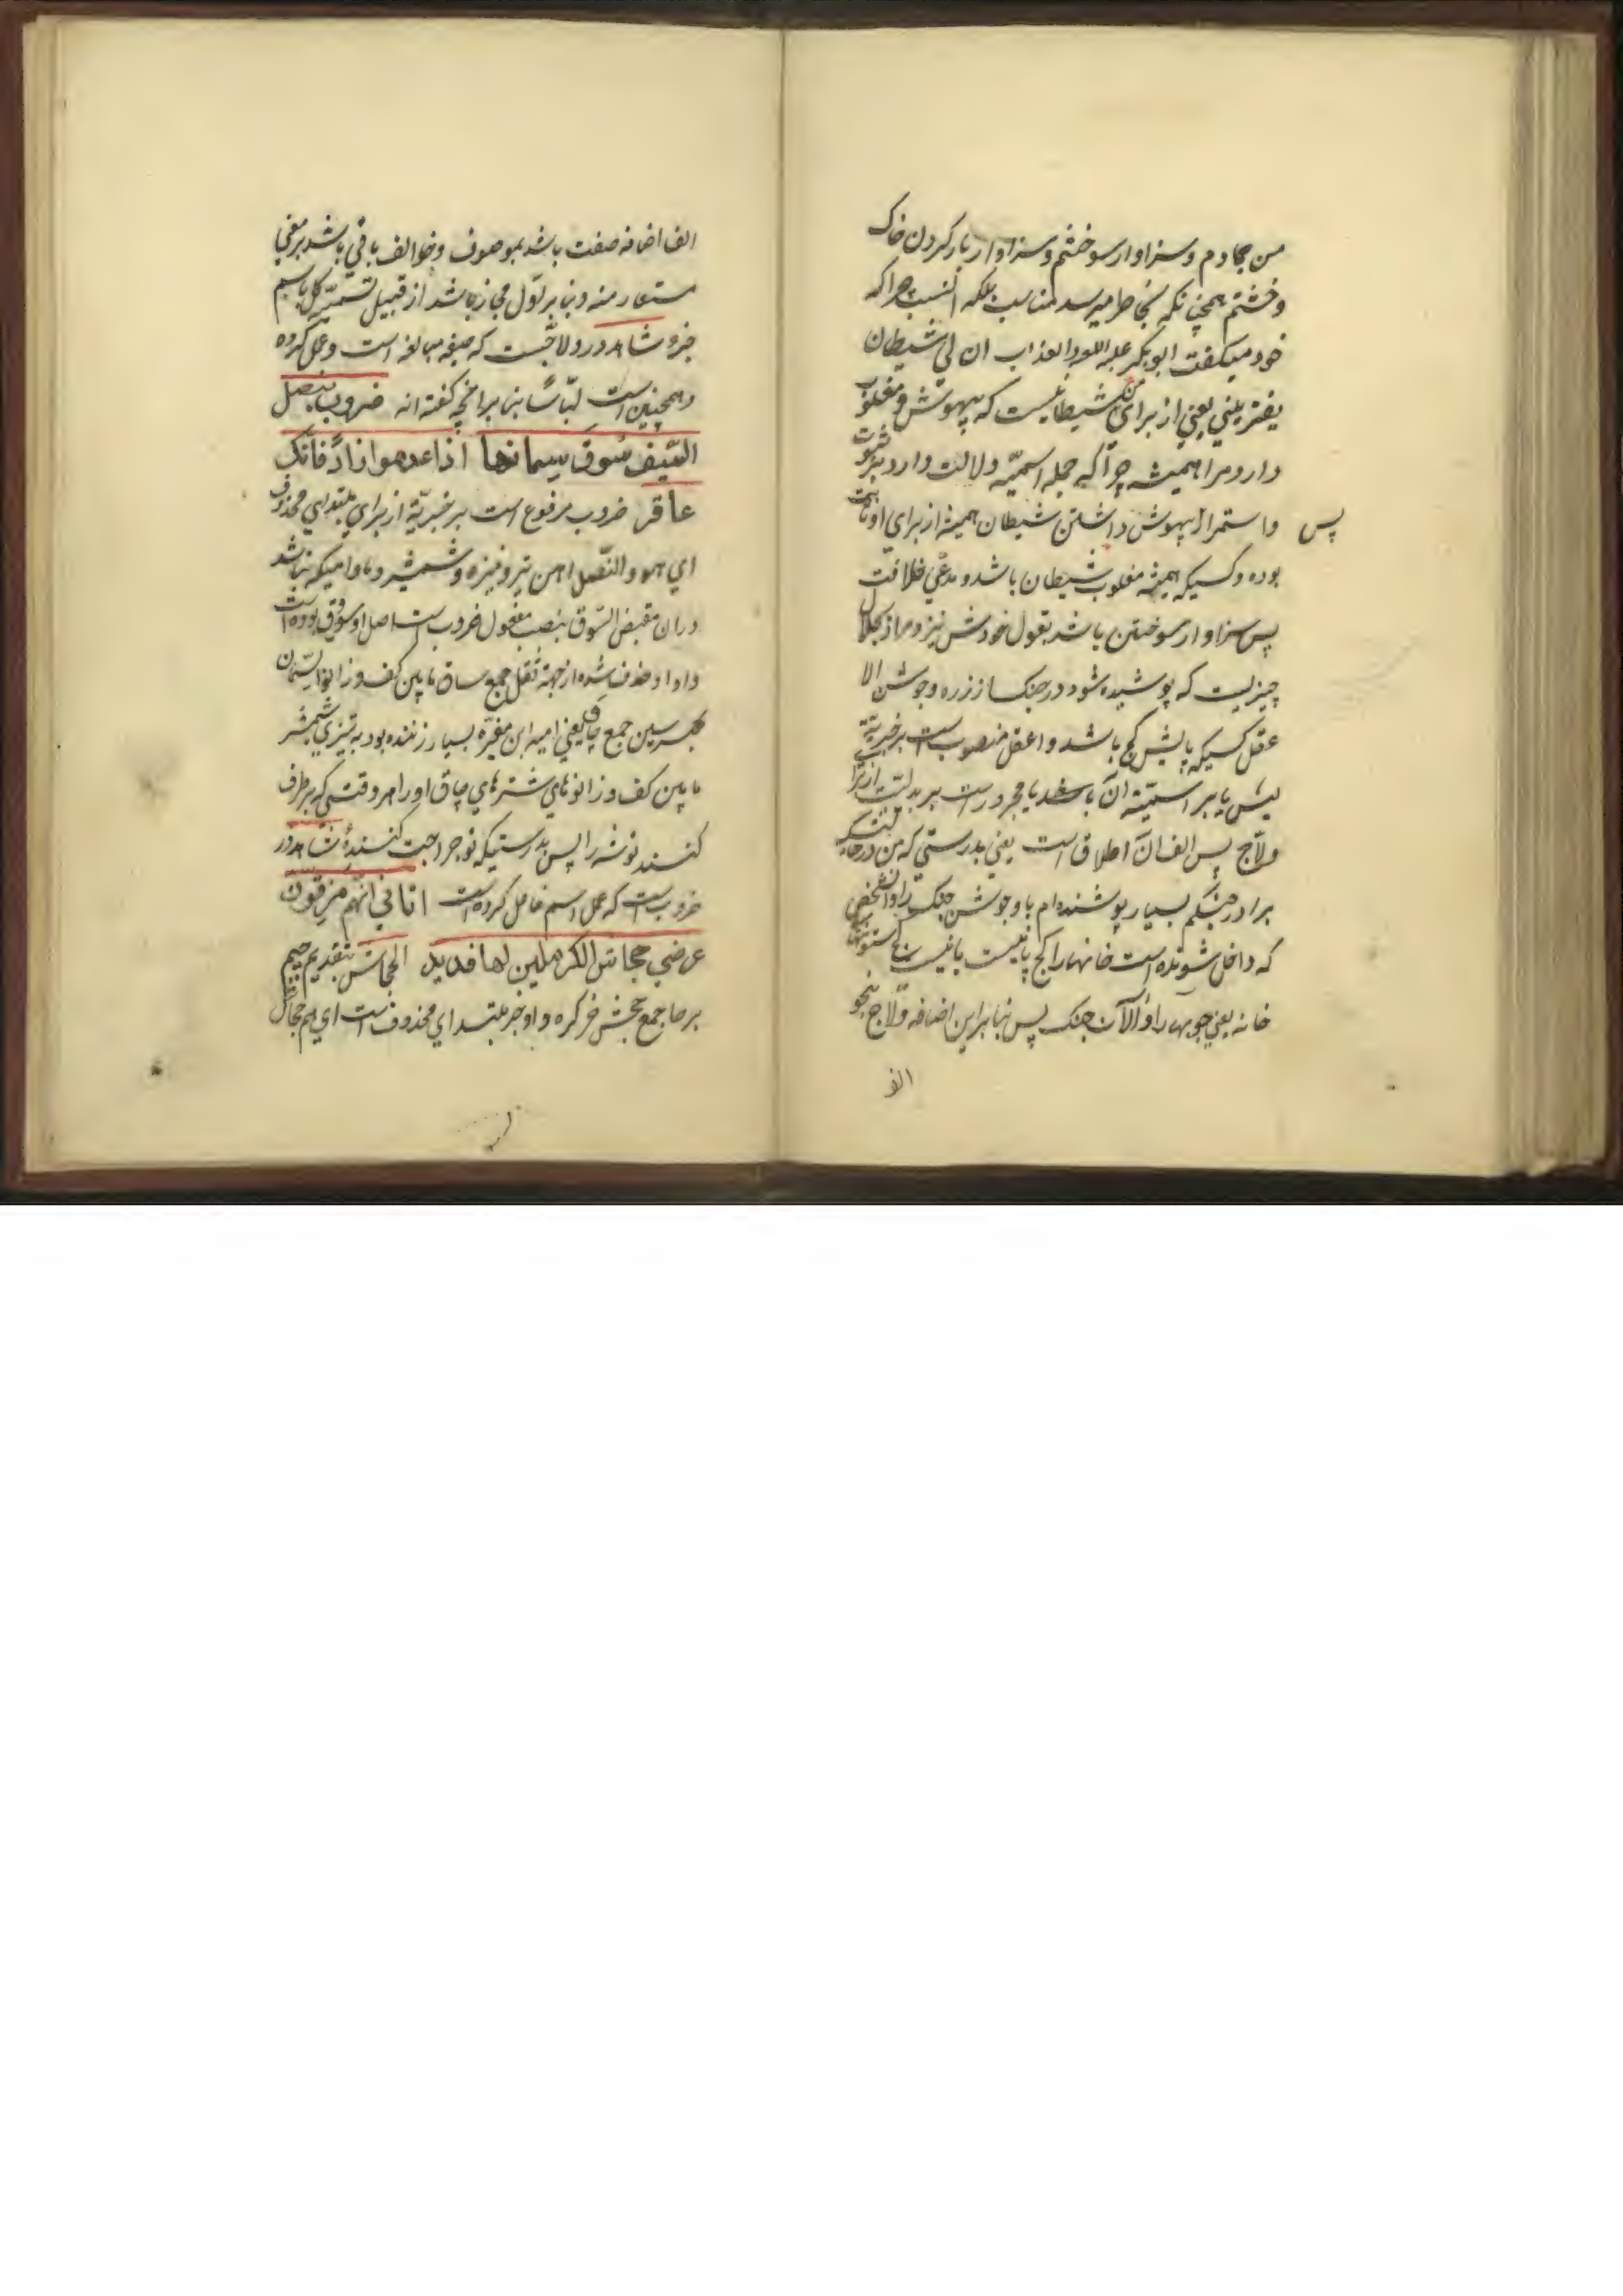 من مجادم و سزاوار سوختم و سزاوار بار کردن خاک
و خشتم همچنانکه بخاطر میرسد مناسب بلکه انسب چراکه
خود میگفت ابوبکر علیه اللعنه والعذاب ان لی شیطان
یعترینی یعنی از برای من شیطانیست که بیهوش و مغلوب
دارد مرا همیشه چرا که جمله اسمیّه دلالت دارد بر ثبوت
و استمرار بیهوش داشتن شیطان همیشه از برای او ثابت
پس
بوده و کسیکه همیشه مغلوب شیطان باشد و مدعی خلافت
پس سزاوار سوختن باشد بقول خودش نیز و مراد از جلال
چیزیست که پوشیده شود در جنک از زره و جوشن الا
عقل کسیکه پایش کج باشد و اعقل منصوبست بر خبریّة
لیس یا بر اسمیّة انّ باشد یا مجرورست بر بدلیّت از
ولّاج پس الف انّ اطلاق است یعنی بدرستی که من در حالتیکه
برادر جنکم بسیار پوشنده ام باو جوشن جنک را و آنشخص
که داخل شونده است خانها را کج پا نیست یا نیست کج ستونهای
خانه یعنی چوبها را و آلات جنک پس بنابراین اضافه ولّاج بنحو
الف
الف اضافه صفت باشد بموصوف و خوالف باقی باشد بر معنی
مستعار منه و بنابر اوّل مجاز باشد از قبیل تسمیّه کل باسم
جزو شاهد در ولاجست که صیغه مبالغه است و عمل کرده
و همچنین است لبّاسًا بنا بر انچه کفته اند ضروب بنصل
السّیف سوق سمانها اذا عدموا زادًا فانک
عاقر ضروب مرفوع است بر خبریّة از برای مبتدای محذوف
ای هو و النّصل اهن تیر و نیزه و شمشیر و مادامیکه نباشد
دران مقبض السّوق بنصب مفعول ضروب است اصل او سووق بوده است
واو او حذف شده از جهة ثقل جمع ساق مابین کف و زانو السّمان
بکسر سین جمع چاق یعنی امیه ابن مغیّره بسیار زننده بود به تیزی شمشیر
مابین کف و زانوهای شترهای چاق او را هر وقتی که بر طرف
کنند توشه را پس بدرستیکه تو جراحت کننده شاهد در
ضروب است که عمل اسم فاعل کرده است اتانی انّهم مزقون
عرضی جحاش الکرملین لها فدید الجحاش بتقدیم جیم
بر حا جمع جحش خر کره و او خبر مبتدای محذوف است ای هم جحاش